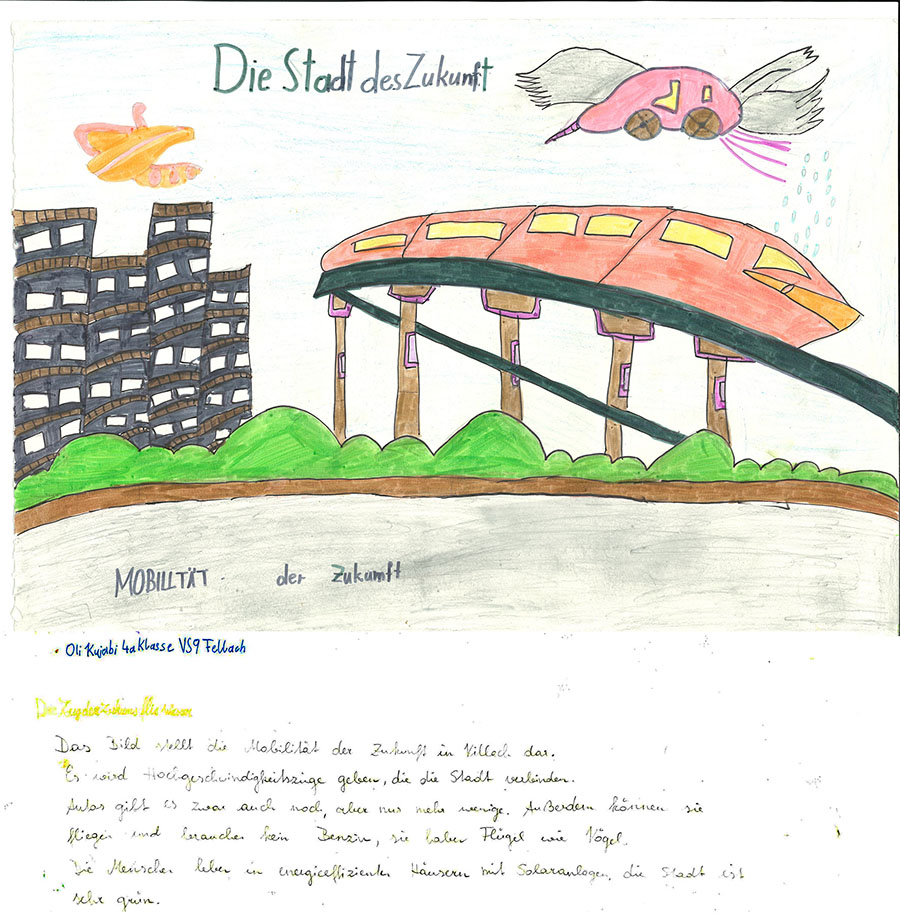 Die Stadt des Zukunft
MOBILLTÄT der Zukumft
Oli Kujabi 4a Klasse VS9 Fellach
Das Bild stellt die Mobilität der Zukunft in Villach dar.
Es wird Hochgeschwindigkeitszüge geben, die die Stadt verbinden.
Autos gibt es zwar auch noch, aber nur mehr wenige. Außerdem können sie
fliegen und brauchen kein Benzin, sie haben Flügel wie Vögel.
Die Menschen leben in energieeffizienten Häusern mit Solaranlagen, die Stadt ist
sehr grün.